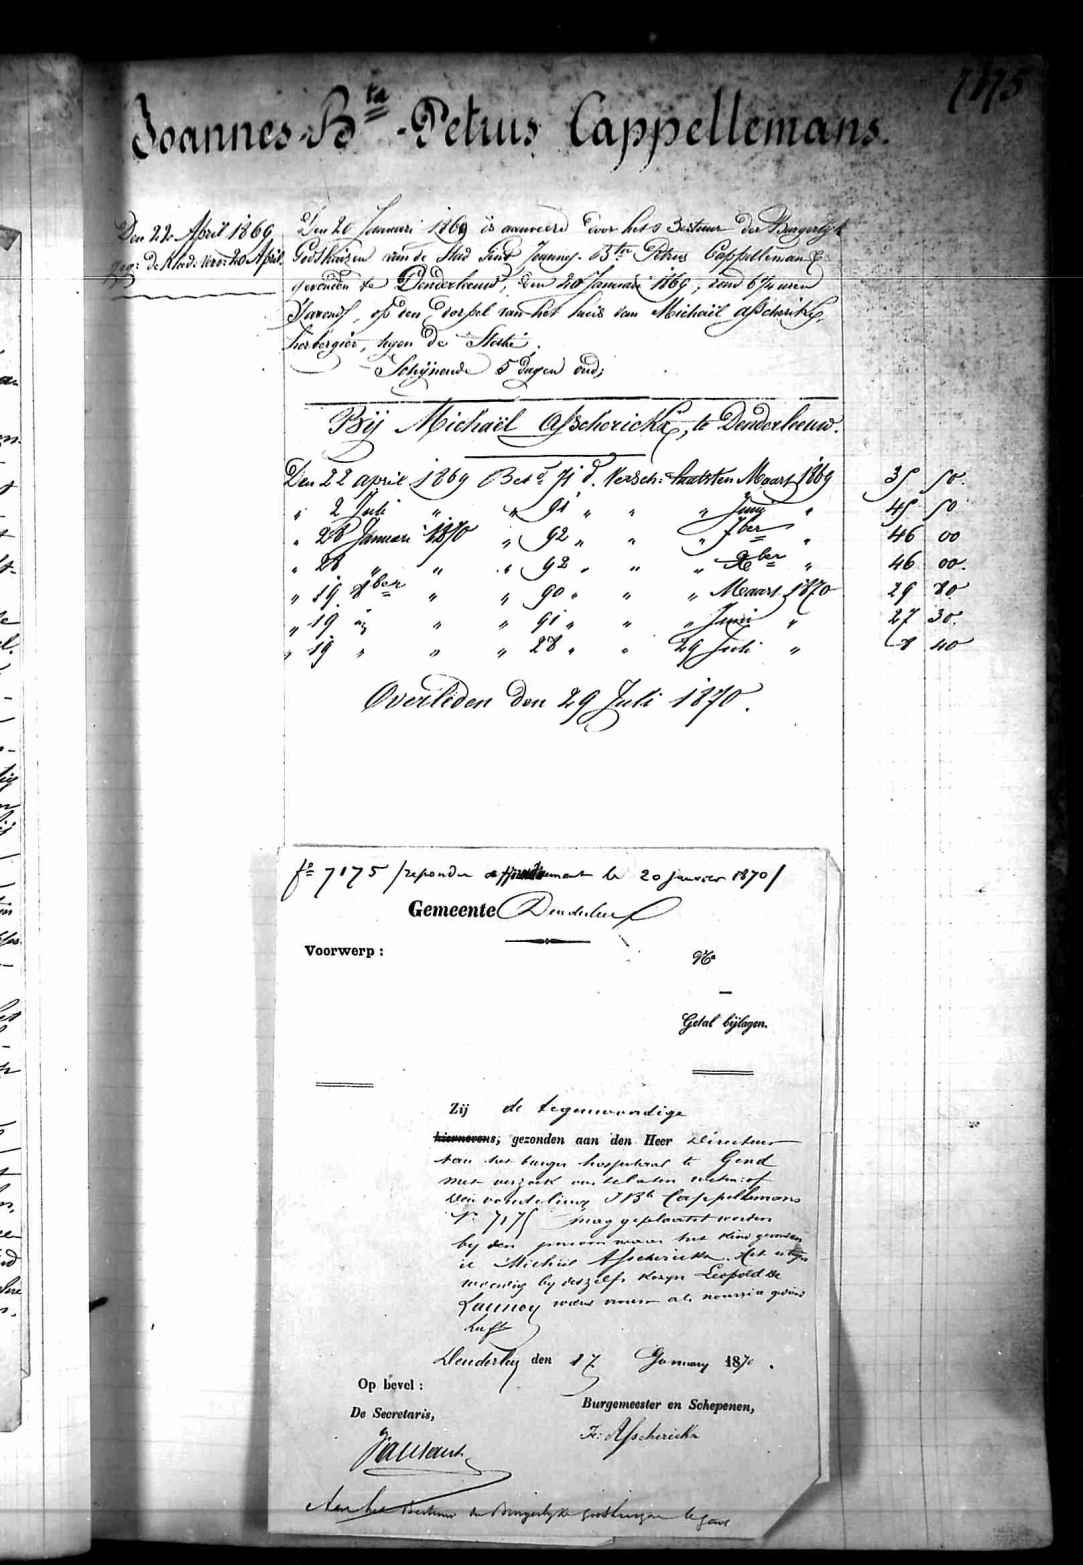 7175
Joannes-Bta-Petrus Cappellemans.
Den 22 April 1869
Den 20 Januari 1869 is aanveerd door het Bestuur der Burgerlijke
Godshuizen van de Stad Gent Joannes Bta Petrus Cappellemans
gevonden te Denderleeuw, den 20 Januari 1869, rond 6 1/4 uren
's avonds, op den dorpel van het huis van Michaël Asscherickx,
herbergier, tegen de Statie.
Schijnende 5 dagen oud;
Bij Michaël Asscherickx, te Denderleeuw.
Den 22 april 1869 Bet. 71 d. Versch: laatsten Maart 1869 35 50.
" 2 Juli " " 91 " " " Juny " 45 50
" 28 Januari 1870 " 92 " " " 7ber " 46 00
" 28 " " " 92 " " " Xber " 46 00.
" 19 8ber " " 90 " " " Maart 1870 29 80.
" 19 " " " 91 " " " Juni " 27 30.
" 19 " " " 28 " " 29 Juli " 8 40
Overleden den 29 Juli 1870.
fo 7175 /repondu le 20 Janvier 1870/
Gemeente Denderleeuw
Voorwerp :
No
—
Getal bijlagen.
Zij de tegenwoordige
hiernevens, gezonden aan den Heer Directeur
van het burger hospitaal te Gend
met verzoek van te laten weten of
den vondeling J Bte Cappellemans
No 7175 mag geplaatst worden
by den persoon waar het kind gevonden
is Michiel Asscherickx. Het is tegen
woordig by deszelfs kozyn Leopold De
Launoy wiens vrouw als nourrice gediend
heeft
Denderleeuw den 17 January 1870.
Op bevel :
De Secretaris,
Burgemeester en Schepenen,
Asscherickx
Aan het Bestuur der Burgerlyke godshuizen te Gend